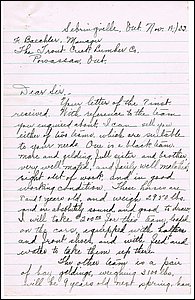 Sebringville, Ont. Nov. 18/22
Manager
The Trout Creek Lumber Co.
Powassan, Ont.
Dear Sir,
Your letter of the 7 inst
received. With reference to the team
you enquired about I can sell you
either of two teams, which are suitable
to your needs. One is a black team,
mare and gelding full sister and brother
very well mated, and fairly well matched,
right out of work, and in good
working condition. These horses are
years old, and weigh 2850 lbs.
and are absolutely sound and good & true.
I will take $ for this team, loaded
on the cars, equipped with halters
and front shoes, and with feed and
water to take them up there.
The other team is a pair
of bay geldings, weighing 3100 lbs,
will be 9 years old next spring, have